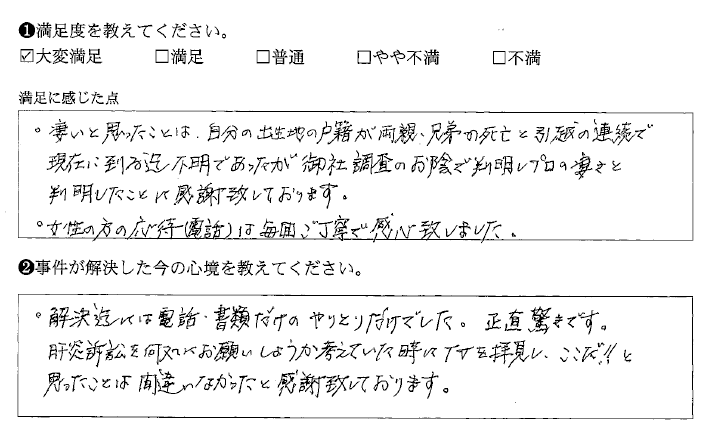 ❶満足度を教えてください。
☑大変満足 □満足 □普通 □やや不満 □不満
満足に感じた点
。凄いと思ったことは、自分の出生地の戸籍が両親、兄弟の死亡と引越の連続で
現在に到る迄不明であったが御社調査のお陰で判明しプロの凄さと
判明したことに感謝致しております。
。女性の方の応待(電話)は毎回ご丁寧で感心致しました。
❷事件が解決した今の心境を教えてください。
。解決迄には電話・書類だけのやりとりだけでした。正直驚きです。
肝炎訴訟を何処にお願いしようか考えていた時にTVを拝見し、ここだ!!と
思ったことは間違いなかったと感謝致しております。